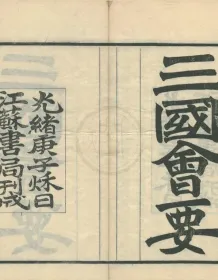 三國會要
光緒庚子秌日
江蘇書局刊成